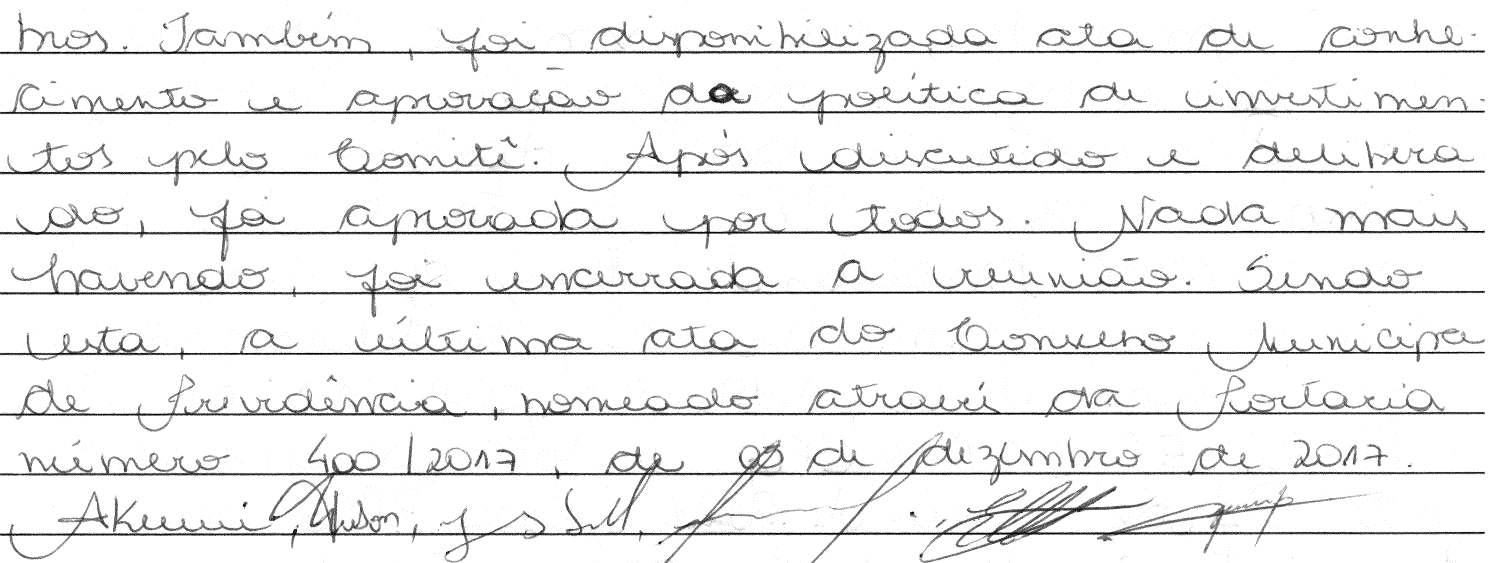 bros. Também, foi disponibilizada ata de conhe-
cimento e aprovação da política de investimen-
tos pelo Comitê. Após discutido e delibera
do, foi aprovada por todos. Nada mais
havendo, foi encerrada a reunião. Sendo
esta, a última ata do Conselho Municipa
de Previdência, nomeado através da Portaria
número 400/2017, de de dezembro de 2017.
Akemi,